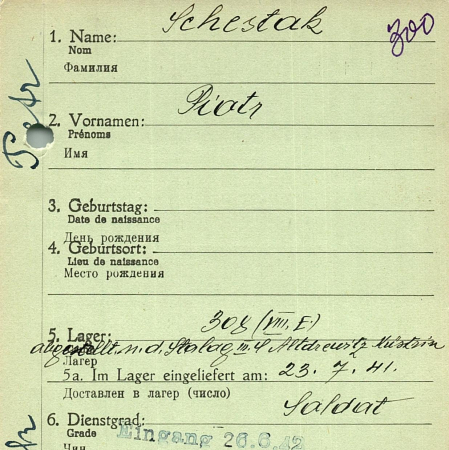 Schestak
300
1. Name:
Nom
Фамилия
Petr
Piotr
2. Vornamen:
Prénoms
Имя
3. Geburtstag:
Date de naissance
День рождения
4. Geburtsort:
Lieu de naissance
Место рождения
308 (VIII. E.)
5. Lager:
n. d. Stalag III C Altdrewitz Küstrin
Лагер
5a. Im Lager eingeliefert am: 23. 7. 41.
Доставлен в лагер (число)
Soldat
6. Dienstgrad:
Grade
Eingang 26.6.42
Чин